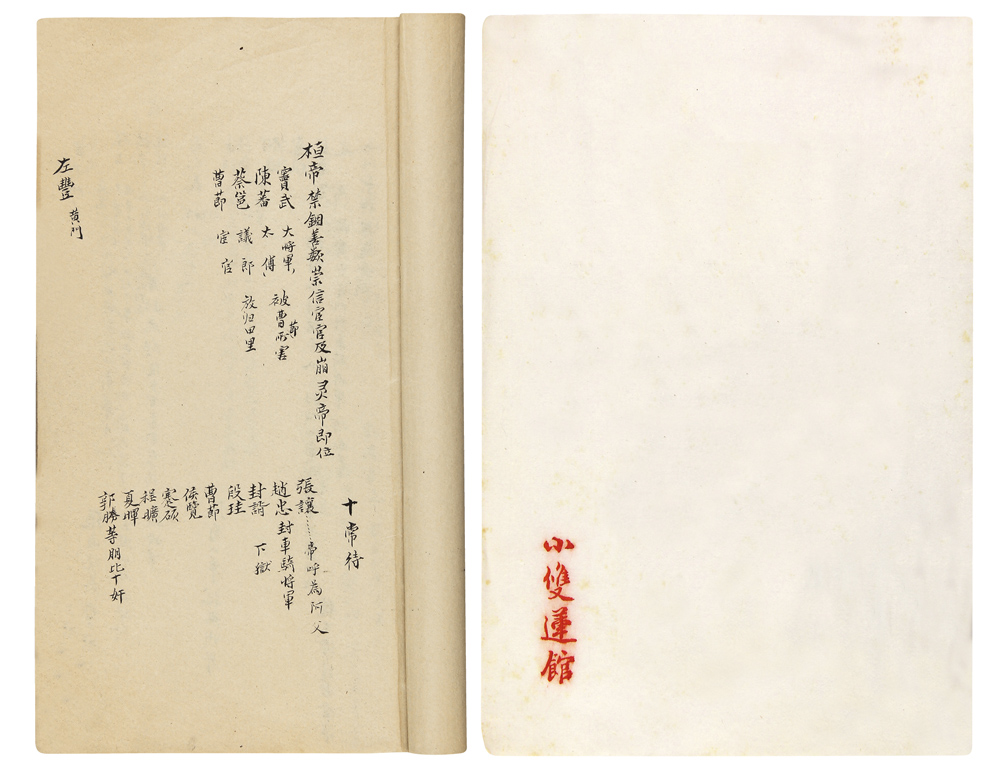 桓帝禁錮善類崇信宦官及崩灵帝即位
竇武 大將軍、被曹節所害
陳蕃 太傅、
蔡邕 議郎 放归田里
曹節 宦官
十常待
張讓……帝呼為阿父
趙忠 封車騎將軍
封諝 下獄
段珪
曹節
侯覽
蹇碩
程曠
夏暉
郭勝等朋比十奸
左豐 黃門
小雙蓮館